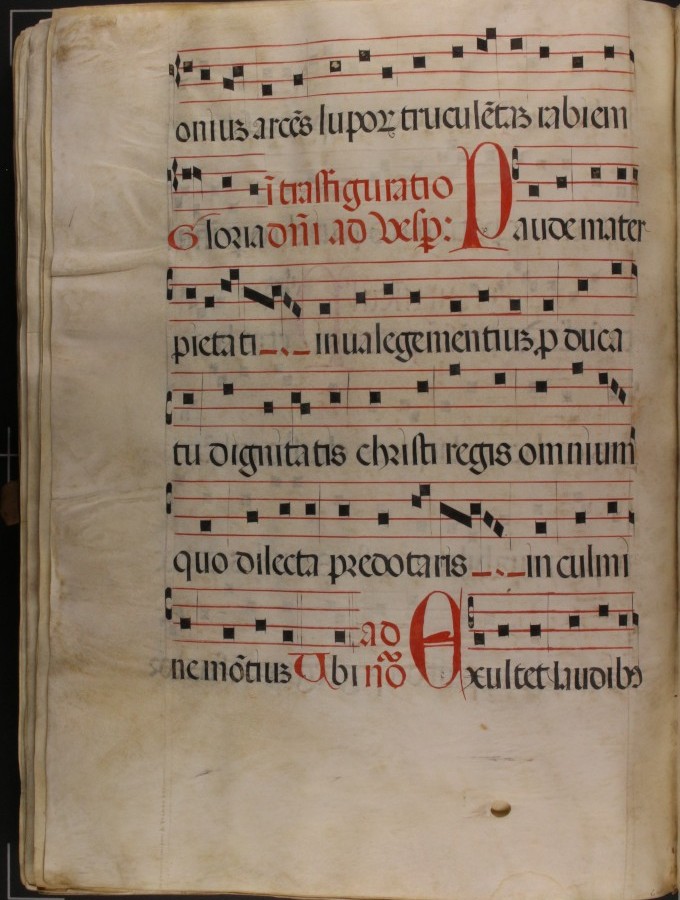 oniuꝫ arcēs lupoꝝ truculētaꝫ rabiem
ī trāsfiguratio
Gloria dn̄i ad vesp: Paude mater
pietati_._ inualegementiuꝫ.p duca
tu dignitatis christi regis omnium
quo dilecta predotaris_._in culmi
ad
ne mōtiuꝫ Ubi nō Exultet laudibꝰ